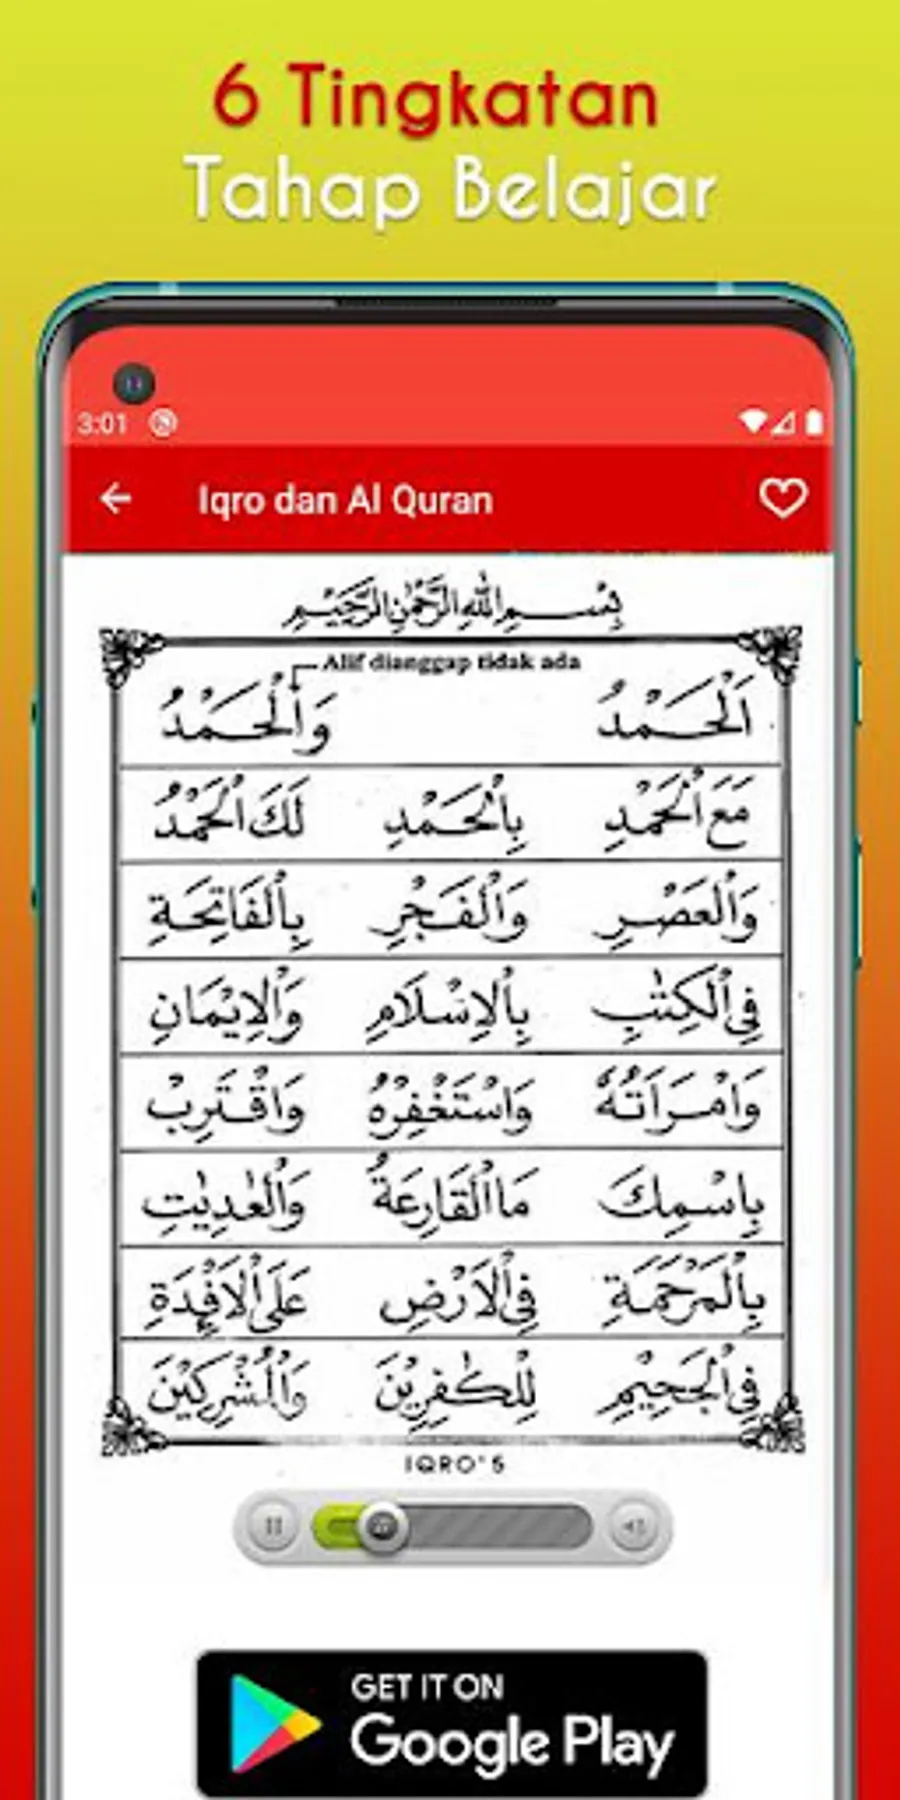 6 Tingkatan
Tahap Belajar
3:01
Iqro dan Al Quran
بِسْــمِ اللّٰهِ الرَّحْمٰنِ الرَّحِيْمِ
Alif dianggap tidak ada
اَلْحَمْدُ وَالْحَمْدُ
مَعَ الْحَمْدِ بِالْحَمْدِ لَكَ الْحَمْدُ
وَالْعَصْرِ وَالْفَجْرِ بِالْفَاتِحَةِ
فِى الْكِتٰبِ بِالْاِسْلَامِ وَالْاِيْمَانِ
وَامْرَاَتُهٗ وَاسْتَغْفِرْهُ وَاقْتَرِبْ
بِاسْمِكَ مَا الْقَارِعَةُ وَالْعٰدِيٰتِ
بِالْمَرْحَمَةِ فِى الْاَرْضِ عَلَى الْاَفْـِٕدَةِ
فِى الْجَحِيْمِ لِلْكٰفِرِيْنَ وَالْمُشْرِكِيْنَ
IQRO' 5
GET IT ON
Google Play